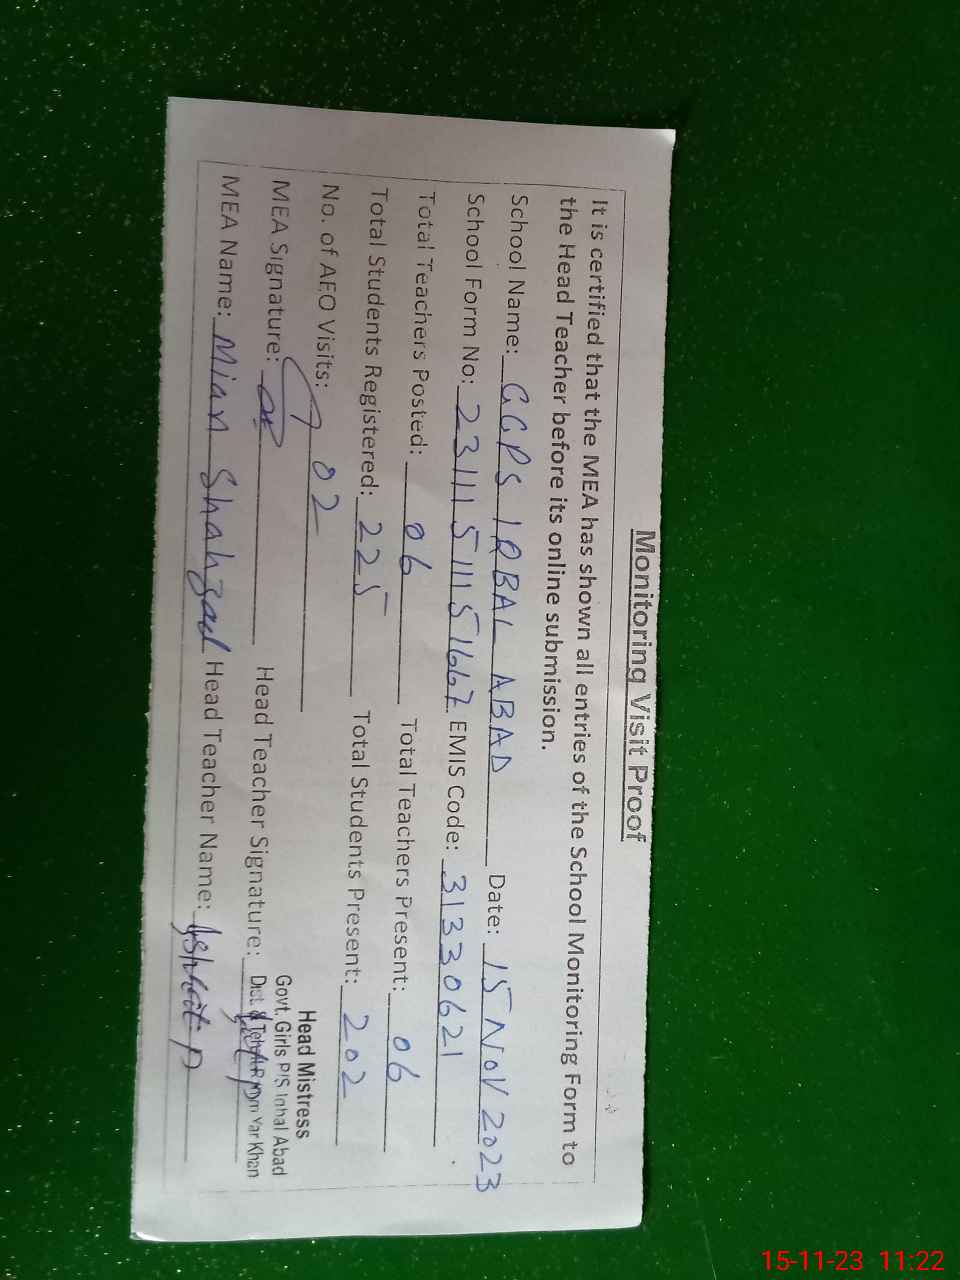 Monitoring Visit Proof
It is certified that the MEA has shown all entries of the School Monitoring Form to
the Head Teacher before its online submission.
School Name: GGPS IQBAL ABAD Date: 15 NOV 2023
School Form No: 23111511151667 EMIS Code: 31330621
Total Teachers Posted: 06 Total Teachers Present: 06
Total Students Registered: 225 Total Students Present: 202
No. of AEO Visits: 02
Head Mistress
Govt. Girls P/S Iqbal Abad
MEA Signature: Head Teacher Signature: Dist. & Teh. Yar Khan
MEA Name: Mian Shahzad Head Teacher Name:
15-11-23 11:22